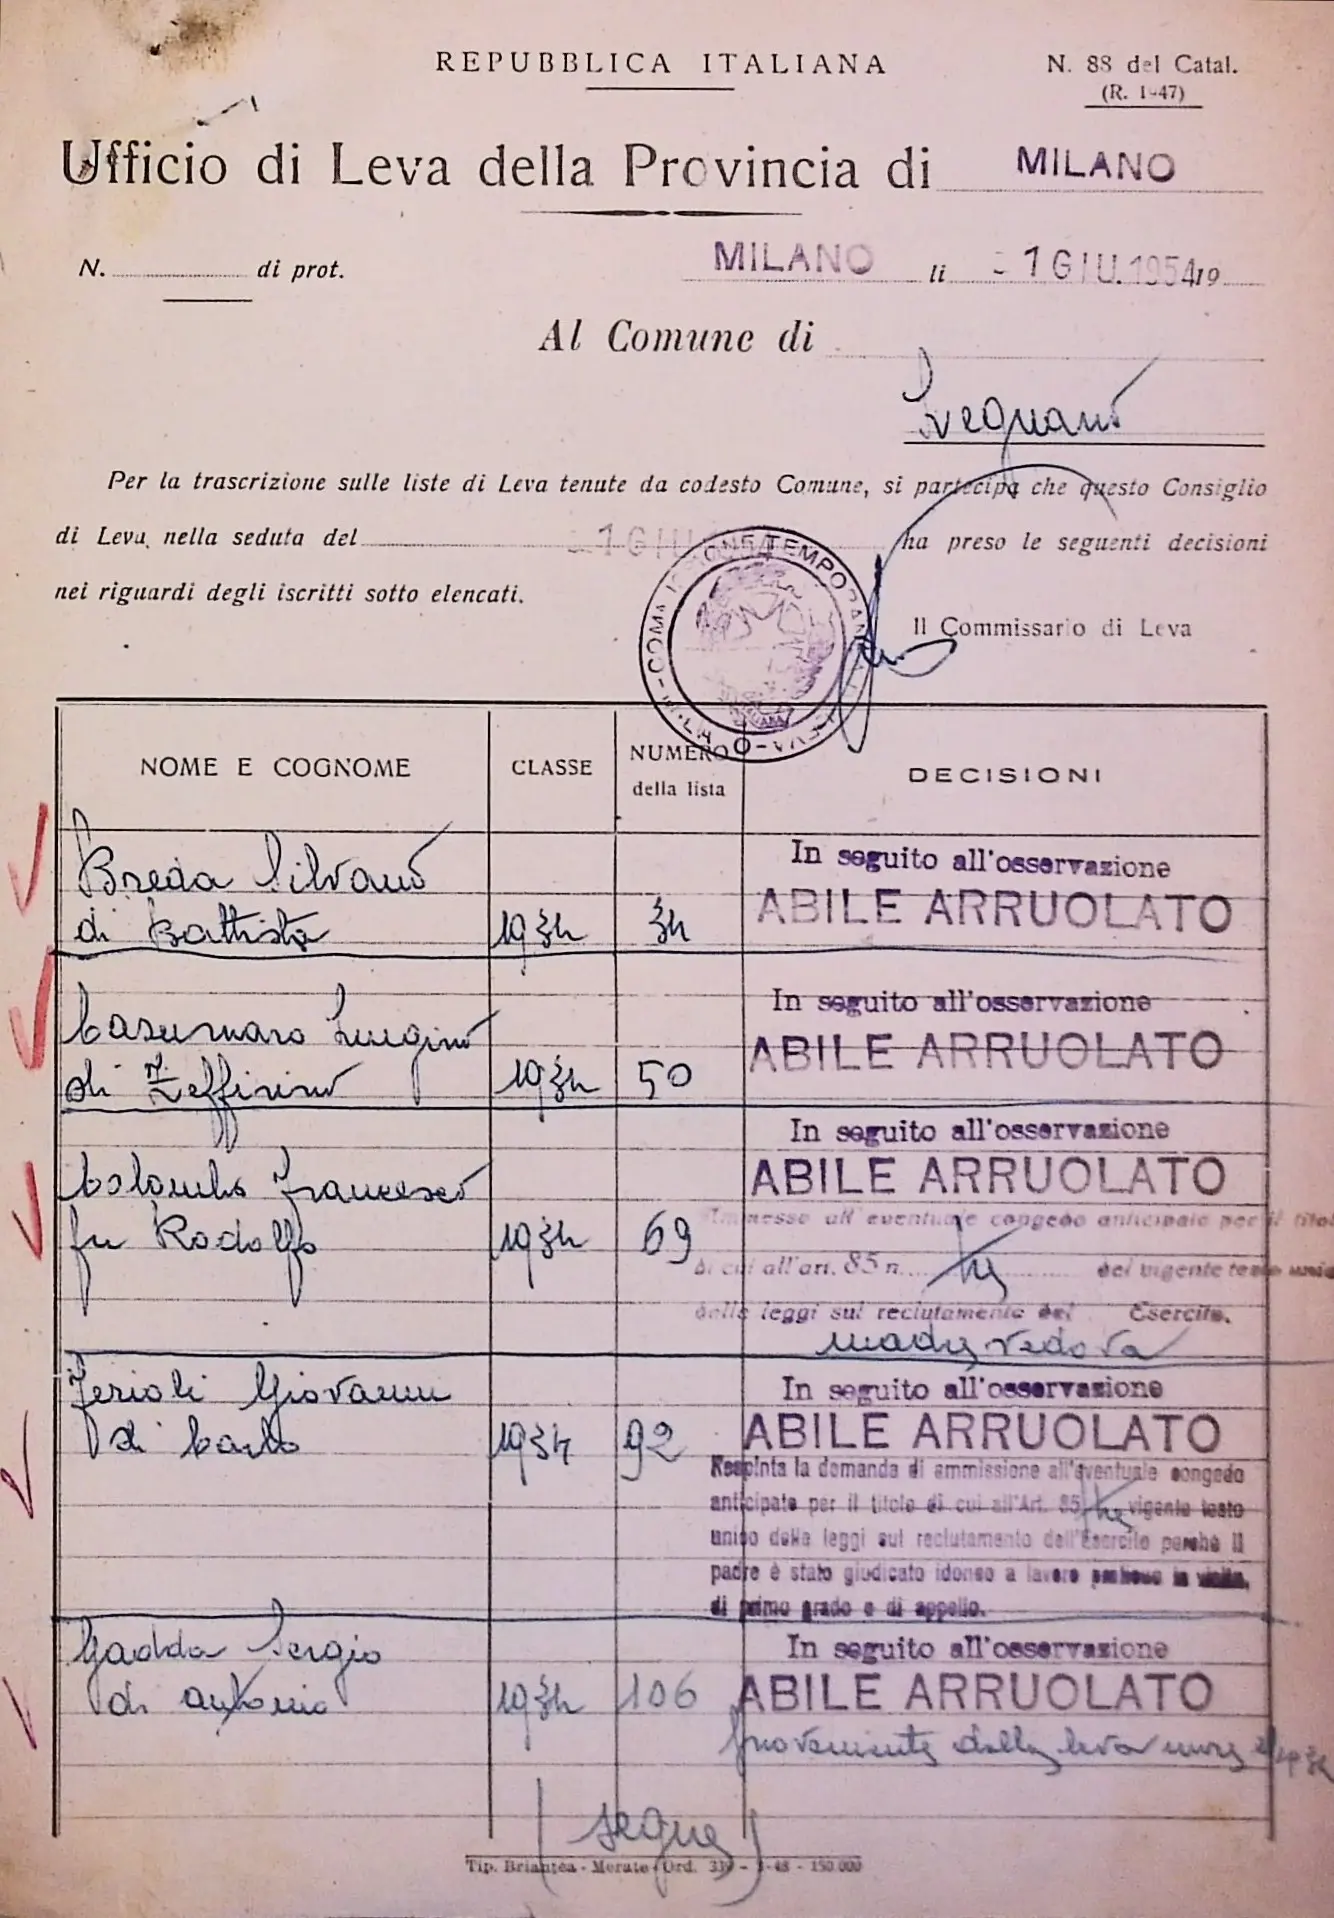 REPUBBLICA ITALIANA
N. 88 del Catal.
(R. 1-47)
Ufficio di Leva della Provincia di MILANO
N. di prot.
MILANO li - 1 GIU. 1954 19
Al Comune di
Legnano
Per la trascrizione sulle liste di Leva tenute da codesto Comune, si partecipa che questo Consiglio
di Leva, nella seduta del - 1 GIU ha preso le seguenti decisioni
nei riguardi degli iscritti sotto elencati.
Il Commissario di Leva
NOME E COGNOME CLASSE NUMERO della lista DECISIONI
Breda Silvano
di Battista 1934 34
In seguito all'osservazione
ABILE ARRUOLATO
Casumaro Luigino
di Zeffirino 1934 50
In seguito all'osservazione
ABILE ARRUOLATO
Colombo Francesco
fu Rodolfo 1934 69
In seguito all'osservazione
ABILE ARRUOLATO
Ammesso all'eventuale congedo anticipato per il titolo
di cui all'art. 85 n. del vigente testo unico
delle leggi sul reclutamento del Esercito.
madre vedova
Ferioli Giovanni
di Carlo 1934 92
In seguito all'osservazione
ABILE ARRUOLATO
Respinta la domanda di ammissione all'eventuale congedo
anticipato per il titolo di cui all'Art. 85 vigente testo
unico delle leggi sul reclutamento dell'Esercito perchè il
padre è stato giudicato idoneo a lavoro proficuo in visita
di primo grado e di appello.
Gadda Sergio
di Antonio 1934 106
In seguito all'osservazione
ABILE ARRUOLATO
proveniente dalla leva mare
(segue)
Tip. Briantea - Merate - Ord. - 48 - 150.000